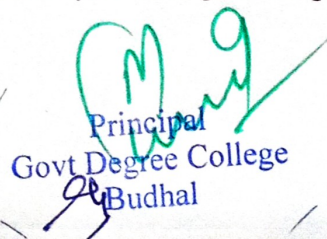 Principal
Govt Degree College
Budhal